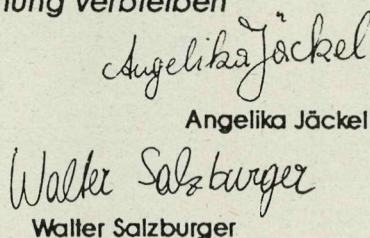 nung verbleiben
Angelika Jäckel
Angelika Jäckel
Walter Salzburger
Walter Salzburger